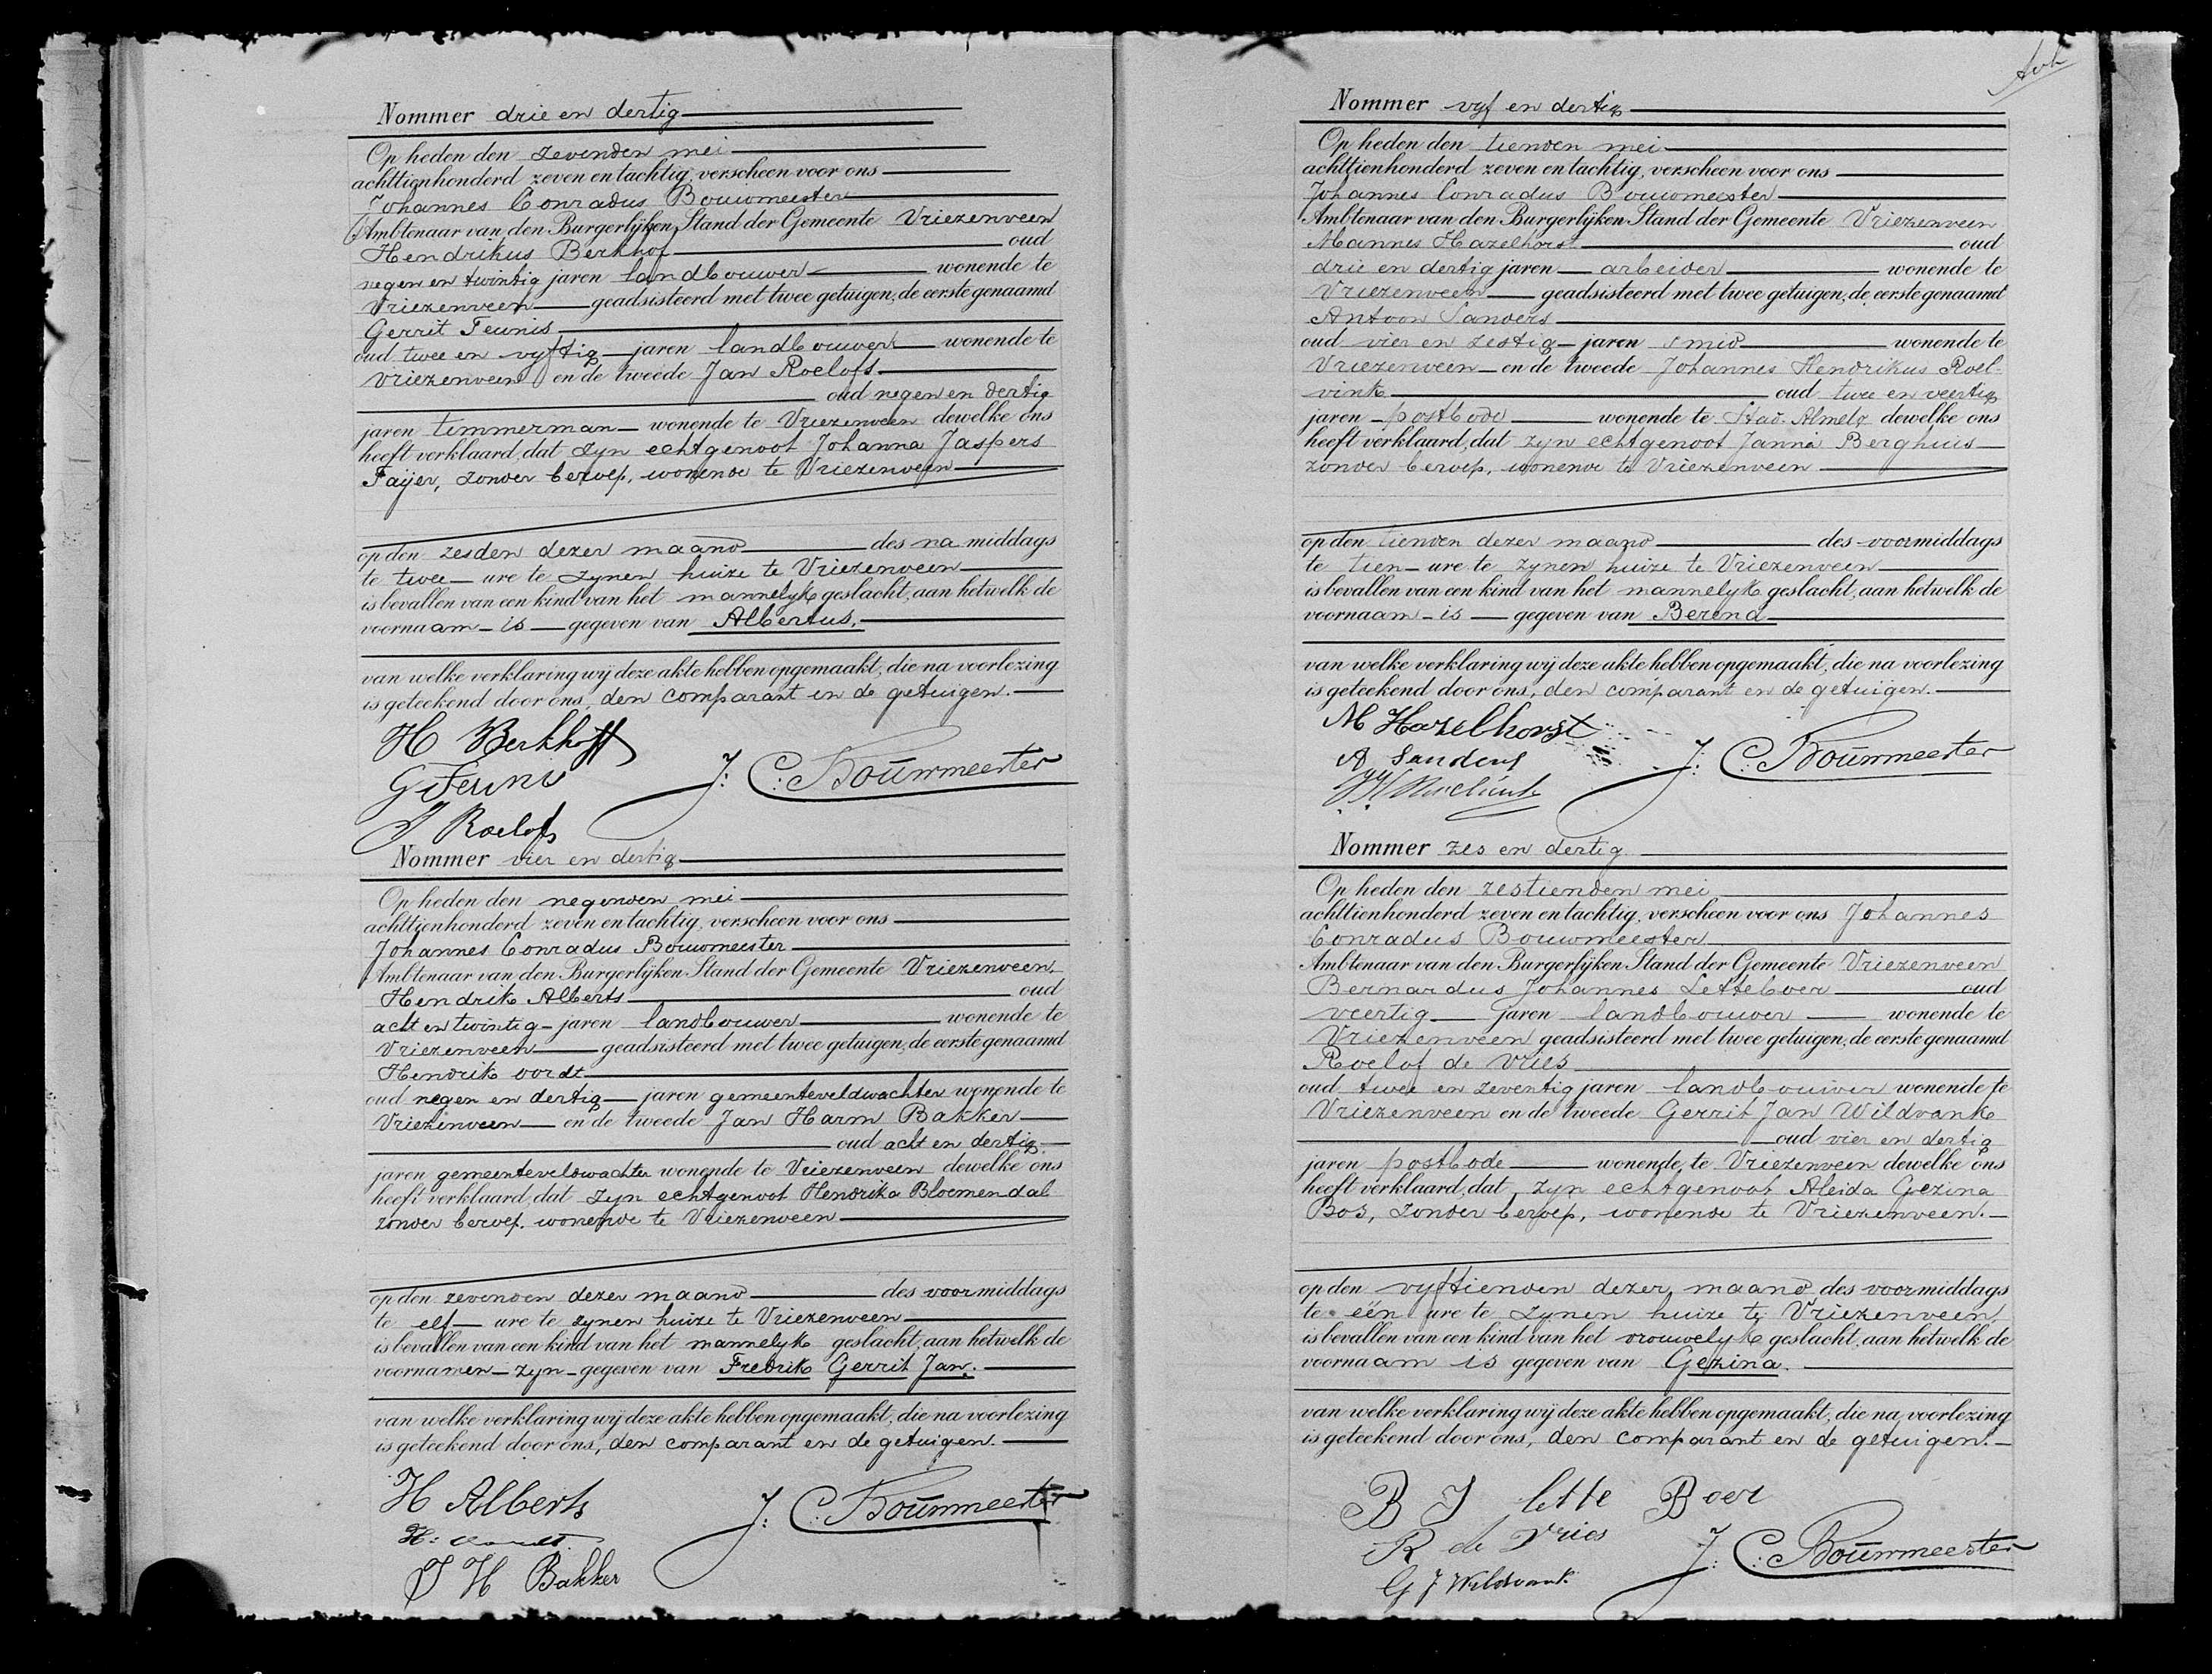 Nommer drie en dertig
Op heden den zevenden mei
achttienhonderd zeven en tachtig, verscheen voor ons
Johannes Conradus Bouwmeester
Ambtenaar van den Burgerlijken Stand der Gemeente Vriezenveen
Hendrikus Berkhof oud
negen en twintig jaren landbouwer wonende te
Vriezenveen geadsisteerd met twee getuigen, de eerste genaamd
Gerrit Teunis
oud twee en vyftig jaren landbouwer wonende te
Vriezenveen en de tweede Jan Roelofs
oud negen en dertig
jaren timmerman wonende te Vriezenveen dewelke ons
heeft verklaard, dat zyn echtgenoot Johanna Jaspers
Faijer, zonder beroep, wonende te Vriezenveen
op den zesden dezer maand des na middags
te twee ure te zynen huize te Vriezenveen
is bevallen van een kind van het mannelyk geslacht, aan hetwelk de
voornaam is gegeven van Albertus.
van welke verklaring wij deze akte hebben opgemaakt, die na voorlezing
is geteekend door ons, den comparant en de getuigen.
H Berkhoff
G Teunis
J: C: Bouwmeester
J Roelofs
Nommer vier en dertig
Op heden den negenden mei
achttienhonderd zeven en tachtig, verscheen voor ons
Johannes Conradus Bouwmeester
Ambtenaar van den Burgerlijken Stand der Gemeente Vriezenveen
Hendrik Alberts oud
acht en twintig jaren landbouwer wonende te
Vriezenveen geadsisteerd met twee getuigen, de eerste genaamd
Hendrik oordt
oud negen en dertig jaren gemeenteveldwachter wonende te
Vriezenveen en de tweede Jan Harm Bakker
oud acht en dertig
jaren gemeenteveldwachter wonende te Vriezenveen dewelke ons
heeft verklaard, dat zyn echtgenoot Hendrika Bloemendal
zonder beroep, wonende te Vriezenveen
op den zevenden dezer maand des voormiddags
te elf ure te zynen huize te Vriezenveen
is bevallen van een kind van het mannelyk geslacht, aan hetwelk de
voornamen zyn gegeven van Fredrik Gerrit Jan.
van welke verklaring wij deze akte hebben opgemaakt, die na voorlezing
is geteekend door ons, den comparant en de getuigen.
H Alberts
J: C: Bouwmeester
J H Bakker
Nommer vyf en dertig
Op heden den tienden mei
achttienhonderd zeven en tachtig, verscheen voor ons
Johannes Conradus Bouwmeester
Ambtenaar van den Burgerlijken Stand der Gemeente Vriezenveen
Mannes Hazelhorst oud
drie en dertig jaren arbeider wonende te
Vriezenveen geadsisteerd met twee getuigen, de eerste genaamd
Antoon Sanders
oud vier en zestig jaren smid wonende te
Vriezenveen en de tweede Johannes Hendrikus Roel-
vink oud twee en veertig
jaren postbode wonende te Stad-Almelo dewelke ons
heeft verklaard, dat zyn echtgenoot Janna Berghuis
zonder beroep, wonende te Vriezenveen
op den tienden dezer maand des voormiddags
te tien ure te zynen huize te Vriezenveen
is bevallen van een kind van het mannelyk geslacht, aan hetwelk de
voornaam is gegeven van Berend
van welke verklaring wij deze akte hebben opgemaakt, die na voorlezing
is geteekend door ons, den comparant en de getuigen.
M Hazelhorst
A Sanders
J: C: Bouwmeester
JH Roelvink
Nommer zes en dertig
Op heden den zestienden mei
achttienhonderd zeven en tachtig, verscheen voor ons Johannes
Conradus Bouwmeester
Ambtenaar van den Burgerlijken Stand der Gemeente Vriezenveen
Bernardus JohannesLetteboer oud
veertig jaren landbouwer wonende te
Vriezenveen geadsisteerd met twee getuigen, de eerste genaamd
Roelof de Vries
oud twee en zeventig jaren landbouwer wonende te
Vriezenveen en de tweede Gerrit Jan Wildvank
oud vier en dertig
jaren postbode wonende te Vriezenveen dewelke ons
heeft verklaard, dat zyn echtgenoot Aleida Gezina
Bos, zonder beroep, wonende te Vriezenveen.
op den vyftienden dezer maand des voormiddags
te één ure te zynen huize te Vriezenveen
is bevallen van een kind van het vrouwelyk geslacht, aan hetwelk de
voornaam is gegeven van Gezina.
van welke verklaring wij deze akte hebben opgemaakt, die na voorlezing
is geteekend door ons, den comparant en de getuigen.
B J lette Boer
R de Vries
J: C: Bouwmeester
G J Wildvank